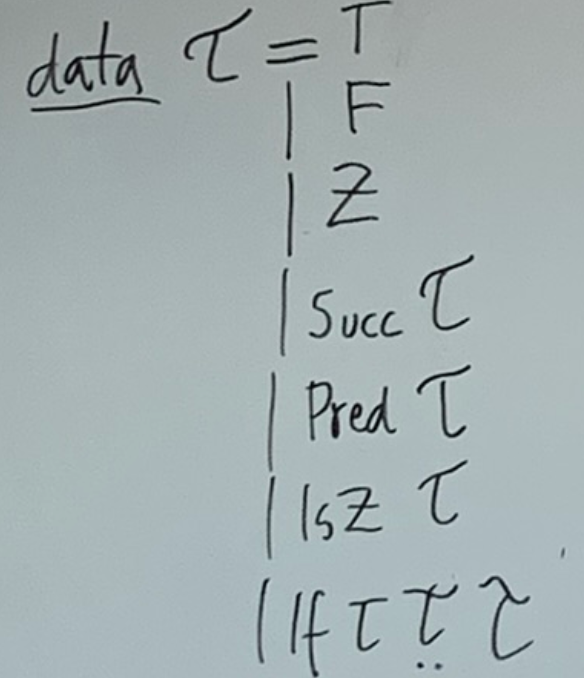 data τ = T
| F
| Z
| Succ τ
| Pred τ
| IsZ τ
| If τ τ τ